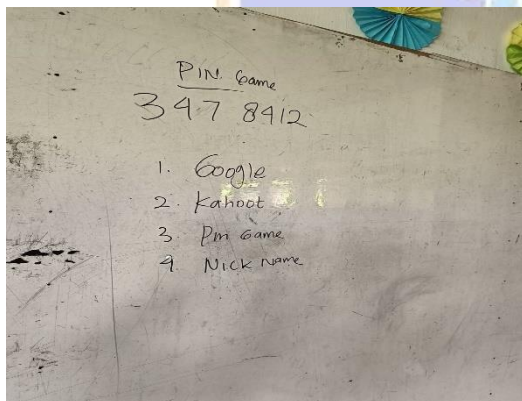 PIN. Game
347 8412
1. Google
2. Kahoot
3. Pin Game
4. Nick Name